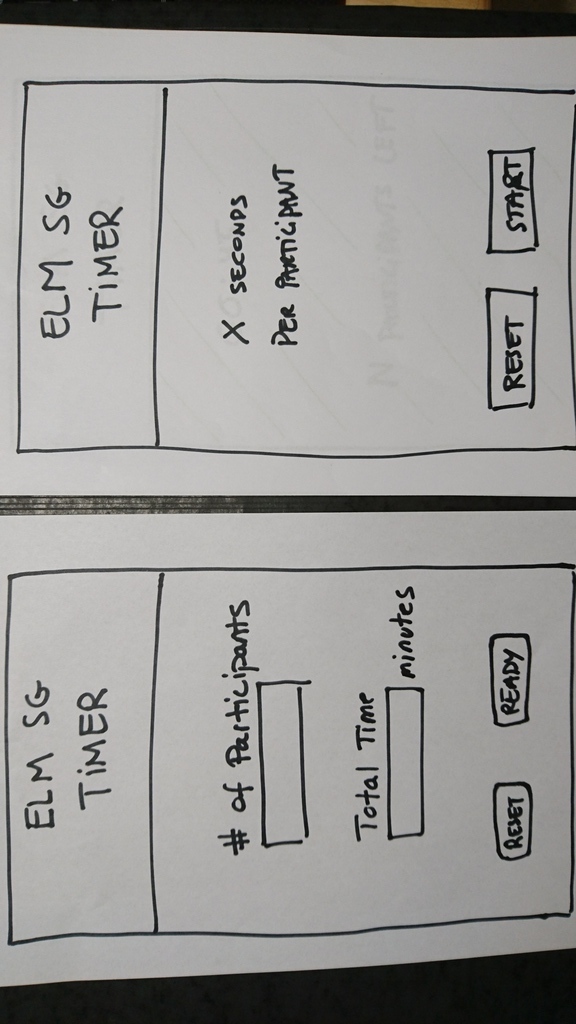 ELM SG
TiMER
# of Participants
Total Time
minutes
RESET
READY
ELM SG
TiMER
X SECONDS
PER PARTiCiPANT
N PARTiCiPANTS LEFT
RESET
START